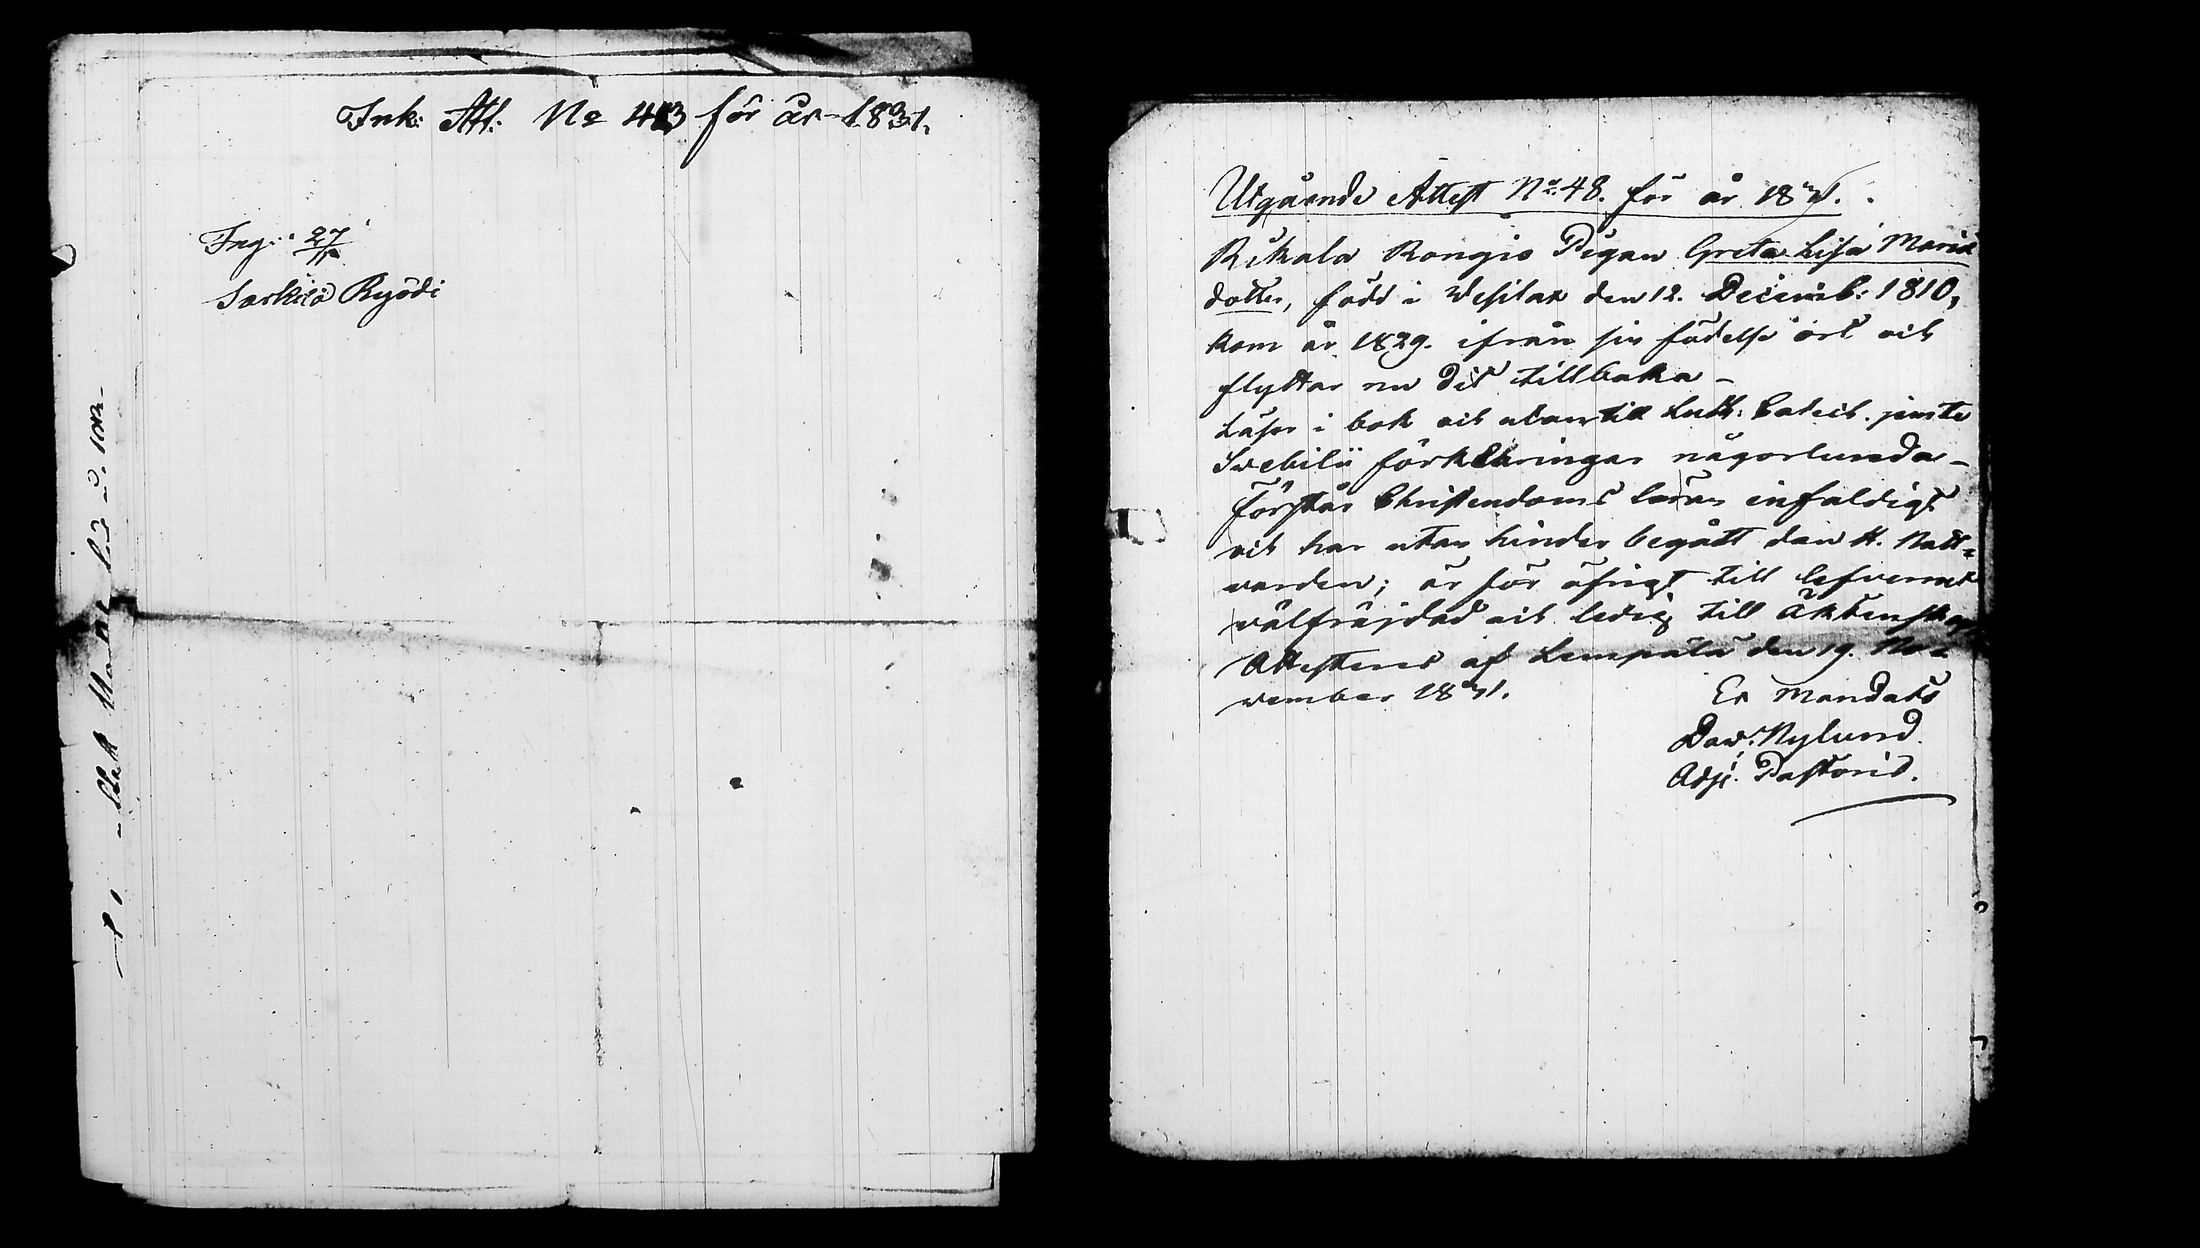 Ink: Att: No 43 för år 1831.
Ing: 27/11
Sarkila Ryödi
Utgående Attest No 48. för år 1831.
Kukala Rongio Pigan Greta Lisa Marie
dotter, född i Wesilax den 12. Decemb: 1810,
kom år 1829. ifrån sin födelse ort och
flyttar nu dit tillbaka –
Läser i bok och utantill Luth: Catech. jemte
Svebilii förklaringar någorlunda –
Förstår Christendoms läran enfaldigt
och har utan hinder begått den H. Natt=
varden; är för öfrigt till lefvernet
välfräjdad och ledig till Äktenskap
Attesteras af Lempäla den 19. No=
vember 1831.
Ex Mandato
Dav: Nylund.
Adj: Pastoris.